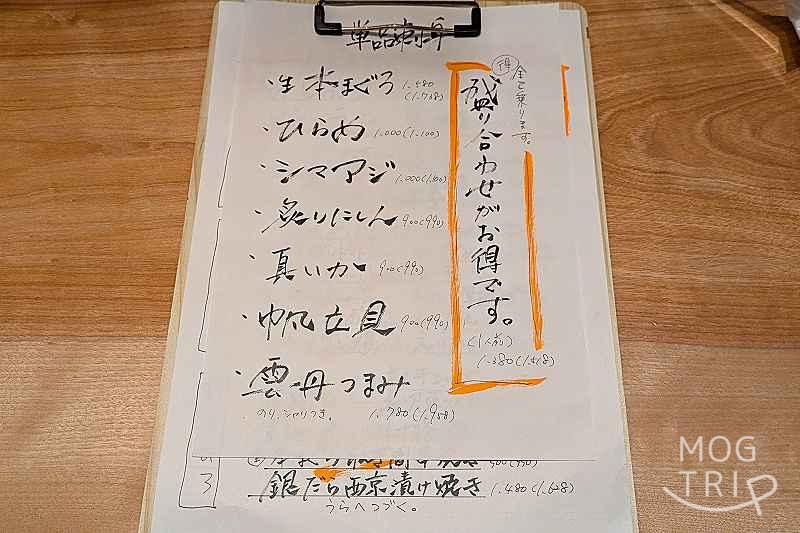 単品刺身
得 全て乗ります。
盛り合わせがお得です。
(1人前)
1.380(1.518)
・生本まぐろ 1.580(1.738)
・ひらめ 1.000(1.100)
・シマアジ 1.000(1.100)
・炙りにしん 900(990)
・真いか 900(990)
・帆立貝 900(990)
・雲丹つまみ
のり、シャリつき。 1.780(1.958)
900(990)
3 銀だら西京漬け焼き 1.480(1.628)
うらへつづく。
MOG
TRIP